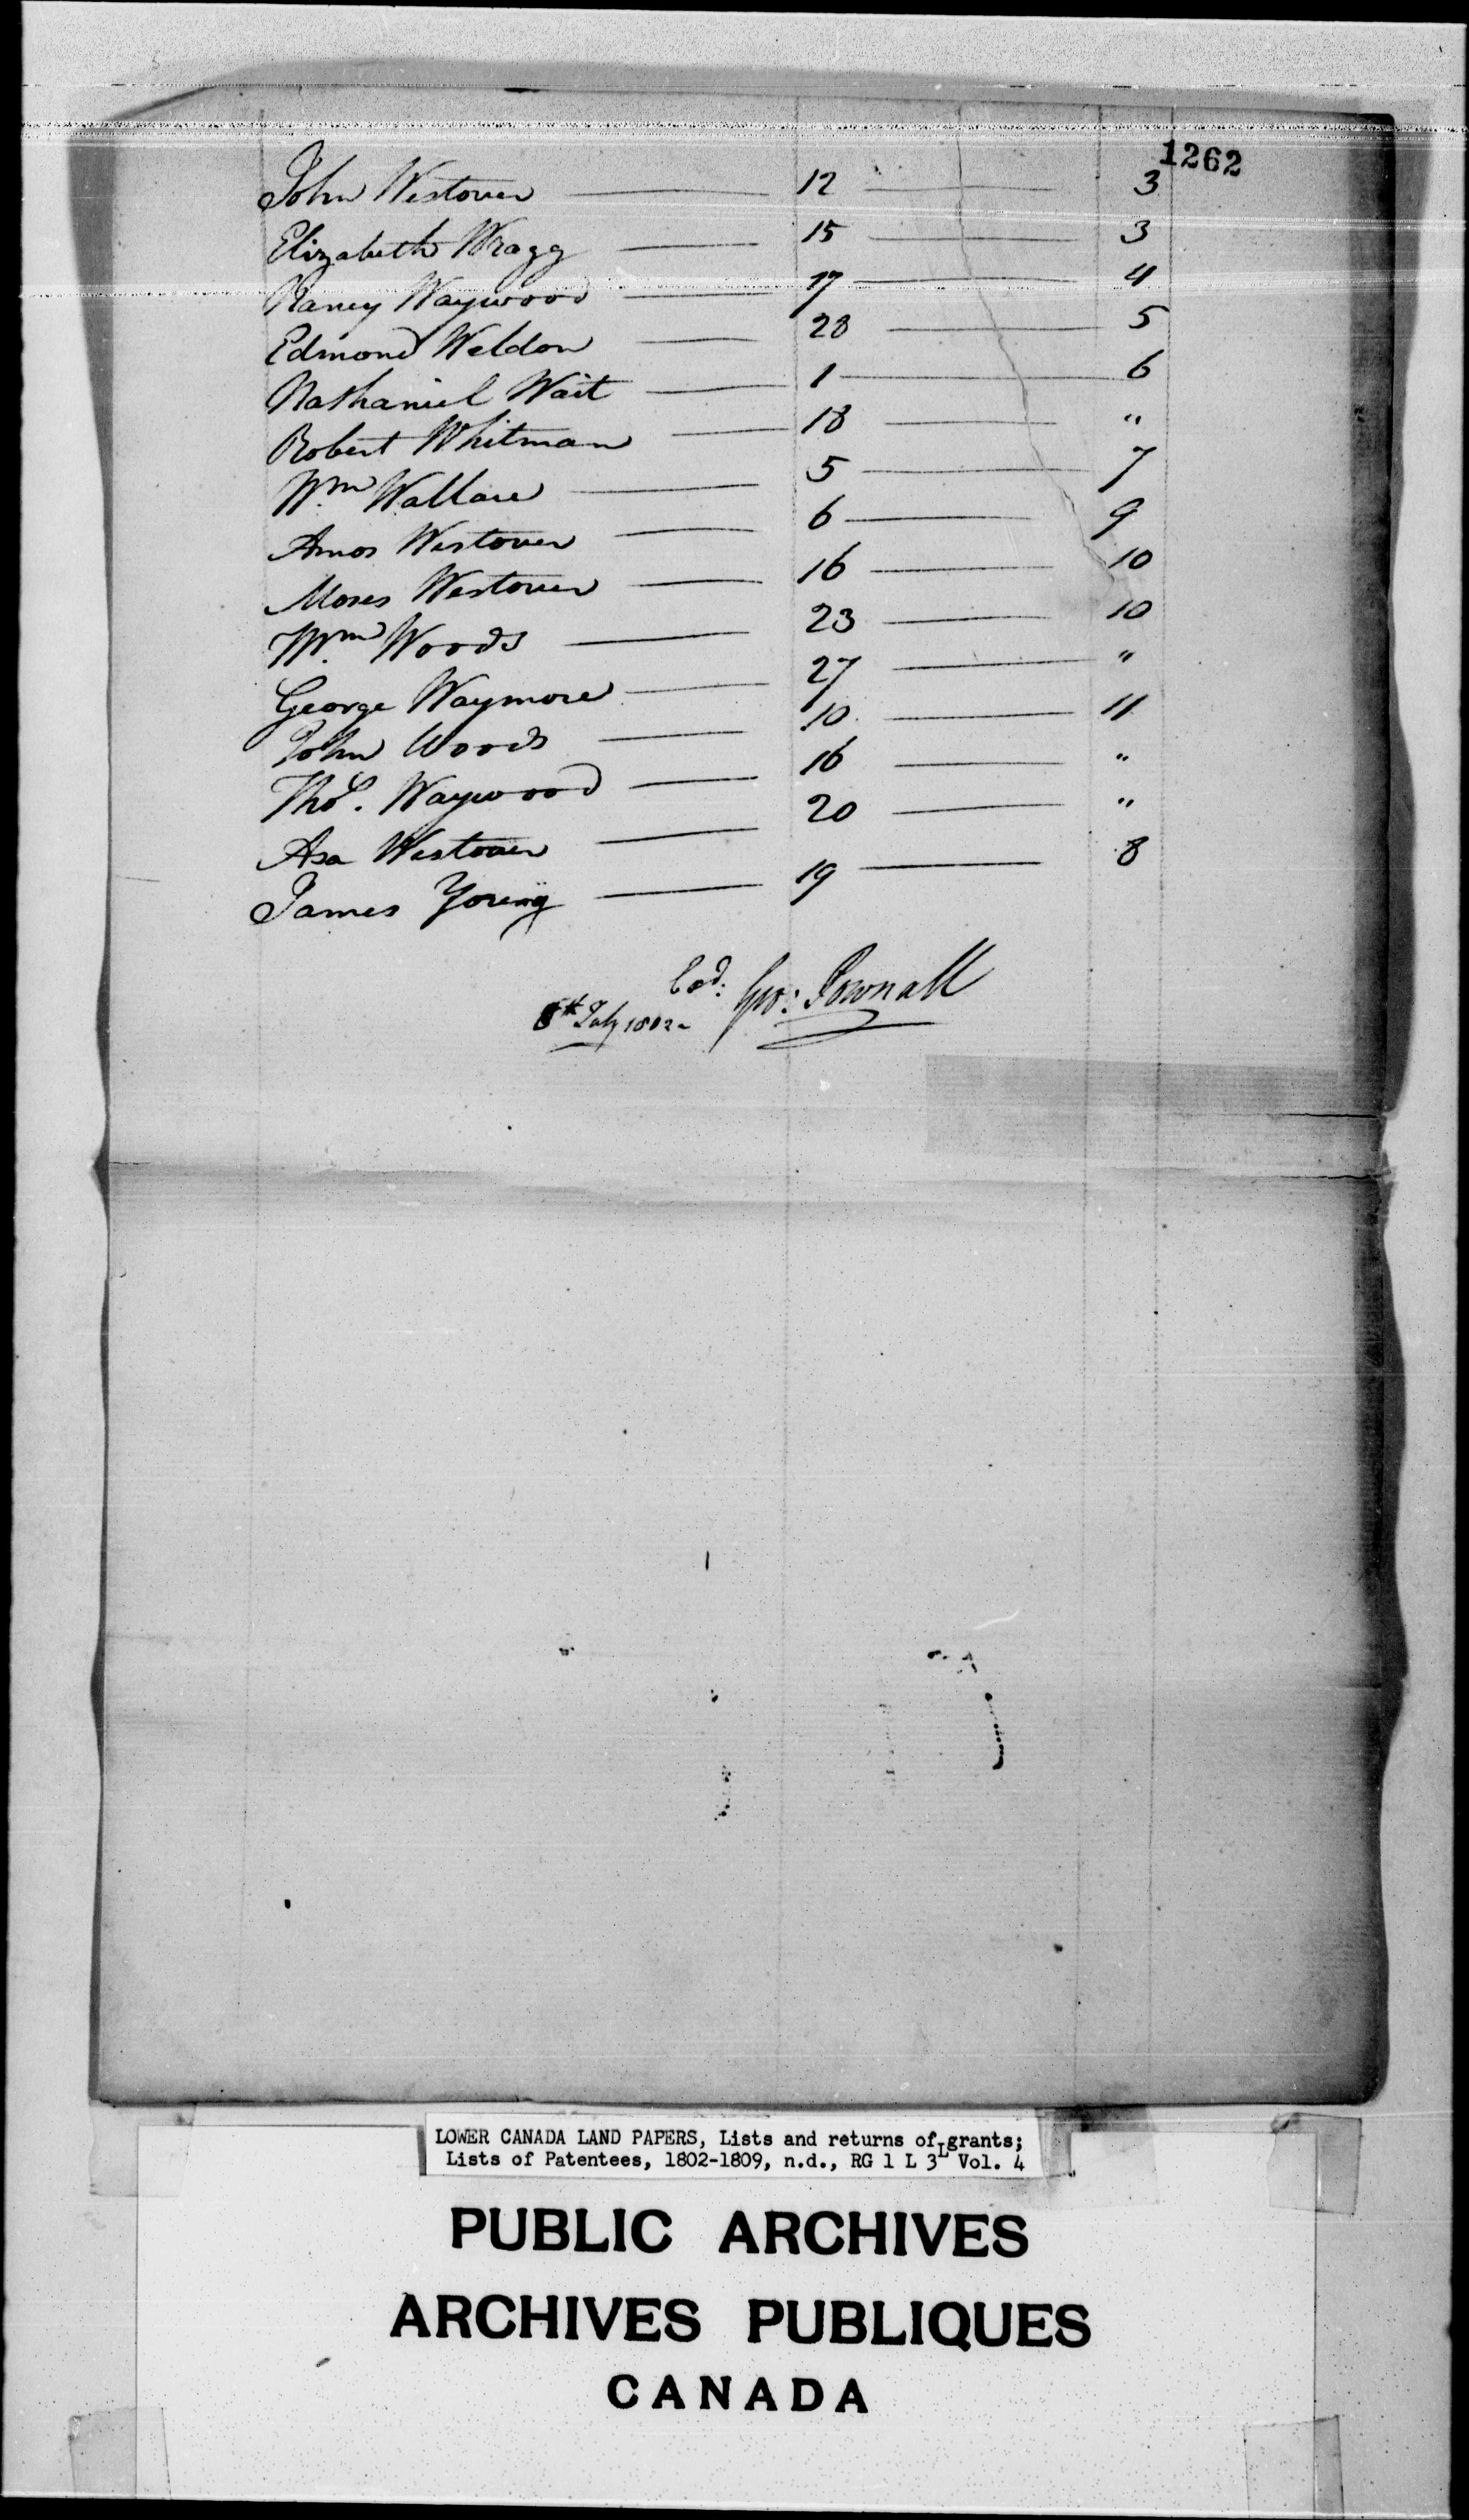 1262
John Westover 12 3
Elizabeth Wragg 15 3
Nancy Waywood 17 4
Edmond Weldon 28 5
Nathaniel Wait 1 6
Robert Whitman 18 "
Wm Wallace 5 7
Amos Westover 6 9
Moses Westover 16 10
Wm Woods 23 10
George Waymore 27 "
John Woods 10 11
Thos. Waywood 16 "
Asa Westover 20 "
James Young 19 8
Geo: Pownall
8th July 1802
LOWER CANADA LAND PAPERS, Lists and returns of grants;
Lists of Patentees, 1802-1809, n.d., RG 1 L 3L Vol. 4
PUBLIC ARCHIVES
ARCHIVES PUBLIQUES
CANADA